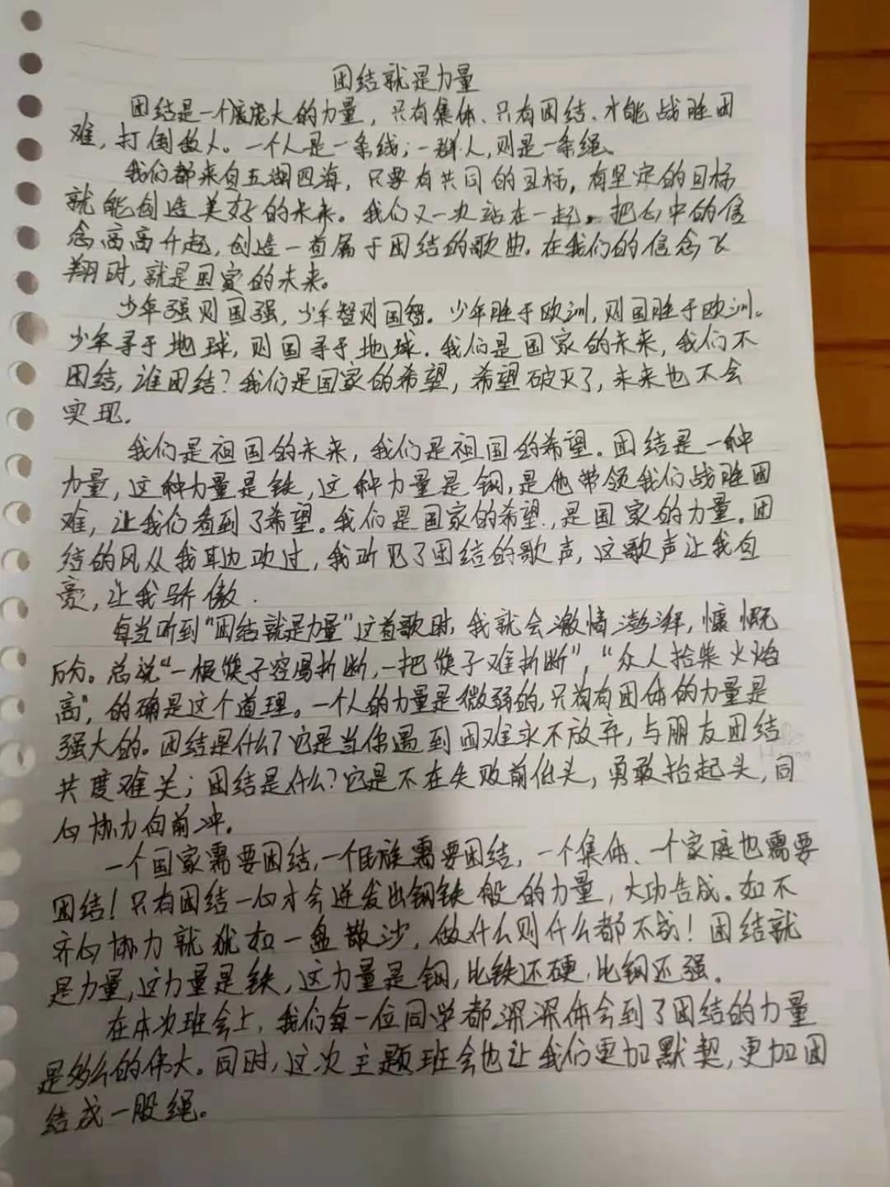 团结就是力量
团结是一个庞大的力量，只有集体、只有团结、才能战胜困
难，打倒敌人。一个人是一条线；一群人，则是一条绳。
我们都来自五湖四海，只要有共同的目标，有坚定的目标
就能创造美好的未来。我们又一次站在一起，把心中的信
念高高升起，创造一首属于团结的歌曲。在我们的信念飞
翔时，就是国家的未来。
少年强则国强，少年智则国智。少年胜于欧洲，则国胜于欧洲。
少年寻于地球，则国寻于地球．我们是国家的未来，我们不
团结，谁团结？我们是国家的希望，希望破灭了，未来也不会
实现．
我们是祖国的未来，我们是祖国的希望。团结是一种
力量，这种力量是铁，这种力量是钢，是他带领我们战胜困
难，让我们看到了希望。我们是国家的希望．，是国家的力量。团
结的风从我耳边吹过，我听见了团结的歌声，这歌声让我自
豪，让我骄傲．
每当听到“团结就是力量”这首歌时，我就会激情澎湃，慷慨
。总说“一根筷子容易折断，一把筷子难折断”，“众人拾柴火焰
高”，的确是这个道理。一个人的力量是微弱的，只有团体的力量是
强大的。团结是什么？它是当你遇到困难永不放弃，与朋友团结
共度难关；团结是什么？它是不在失败前低头，勇敢抬起头，同
心协力向前冲。
一个国家需要团结，一个民族需要团结，一个集体、一个家庭也需要
团结！只有团结一心才会迸发出钢铁般的力量，大功告成。如不
齐心协力就犹如一盘散沙，做什么则什么都不成！团结就
是力量，这力量是铁，这力量是钢，比铁还硬，比钢还强。
在本次班会上，我们每一位同学都深深体会到了团结的力量
是多么的伟大。同时，这次主题班会也让我们更加默契，更加团
结成一股绳。